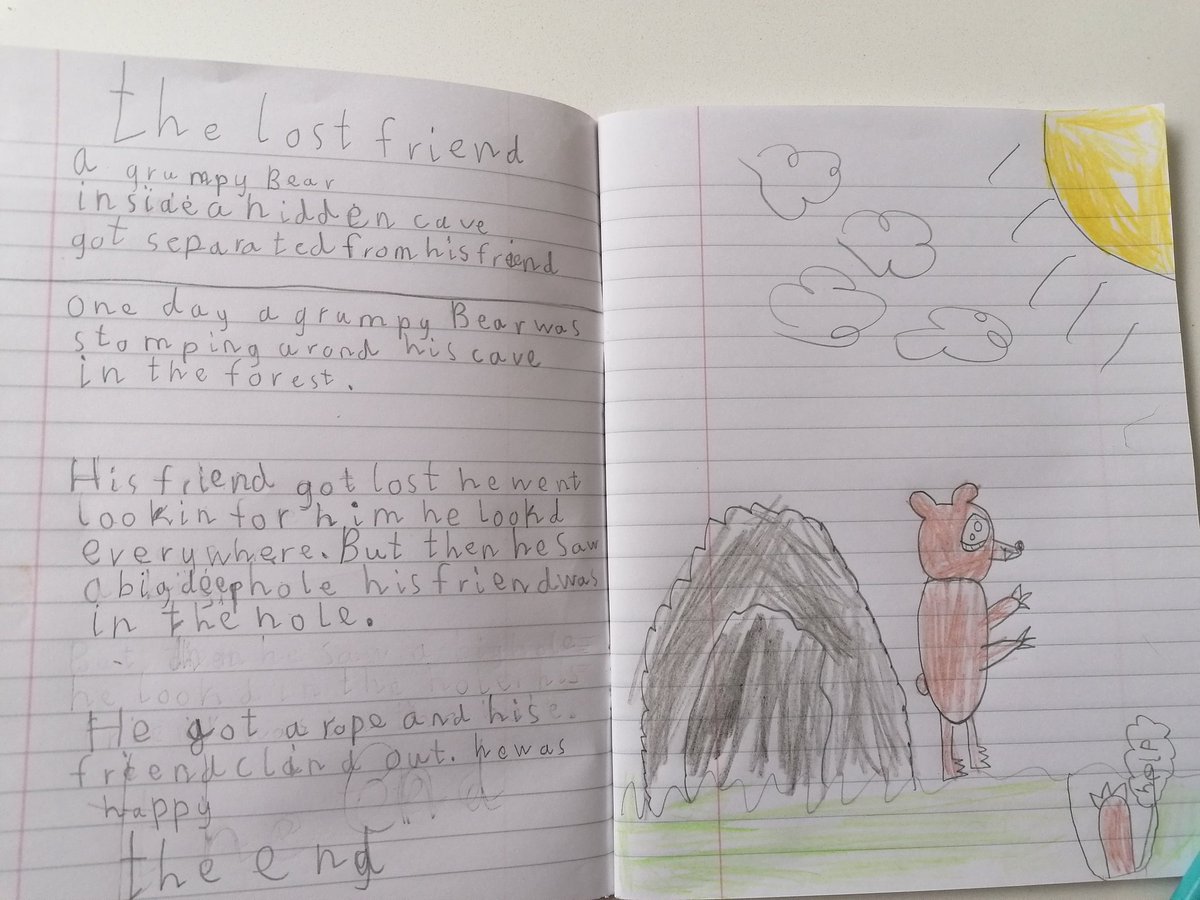 the lost friend
a grumpy Bear
inside a hidden cave
got separated from his friend
one day a grumpy Bear was
stomping arond his cave
in the forest.
His friend got lost he went
lookin for him he lookd
everywhere. But then he saw
a big deep hole his friend was
in the hole.
He got a rope and his
friend out. he was
happy
the end
help